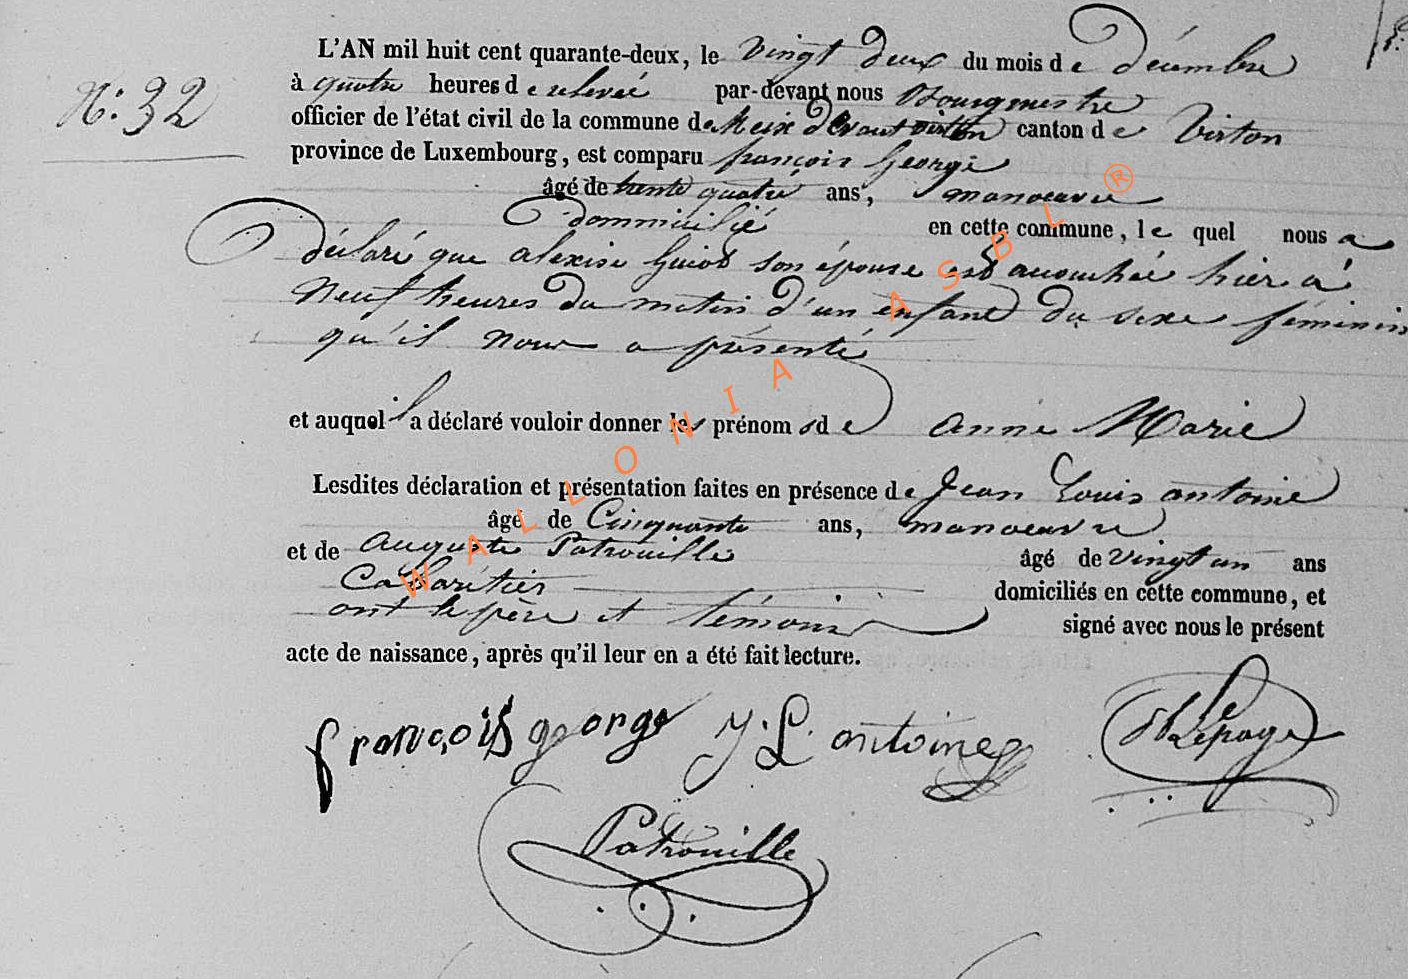 N.° 32
L'AN mil huit cent quarante-deux, le vingt deux du mois de décembre
à quatre heures de relevée par-devant nous Bourgmestre
officier de l'état civil de la commune de Meix devant virton canton de Virton
province de Luxembourg, est comparu françois George
âgé de trente quatre ans, manoeuvre
dommicilié en cette commune, le quel nous a
déclaré que alexise Guiot son épouse est acouchée hier à
Neuf heures du matin d'un enfant du sexe féminin
qu'il nous a présenté
et auquel il a déclaré vouloir donner les prénoms de anne Marie
Lesdites déclaration et présentation faites en présence de Jean Louis antoine
âgé de Cinquante ans, manoeuvre
et de auguste Patrouille âgé de vingt un ans
Cabaretier domiciliés en cette commune, et
ont le père et témoins signé avec nous le présent
acte de naissance, après qu'il leur en a été fait lecture.
françois george J. L. antoine Lepage
Patrouille
WALLONIA ASBL ®